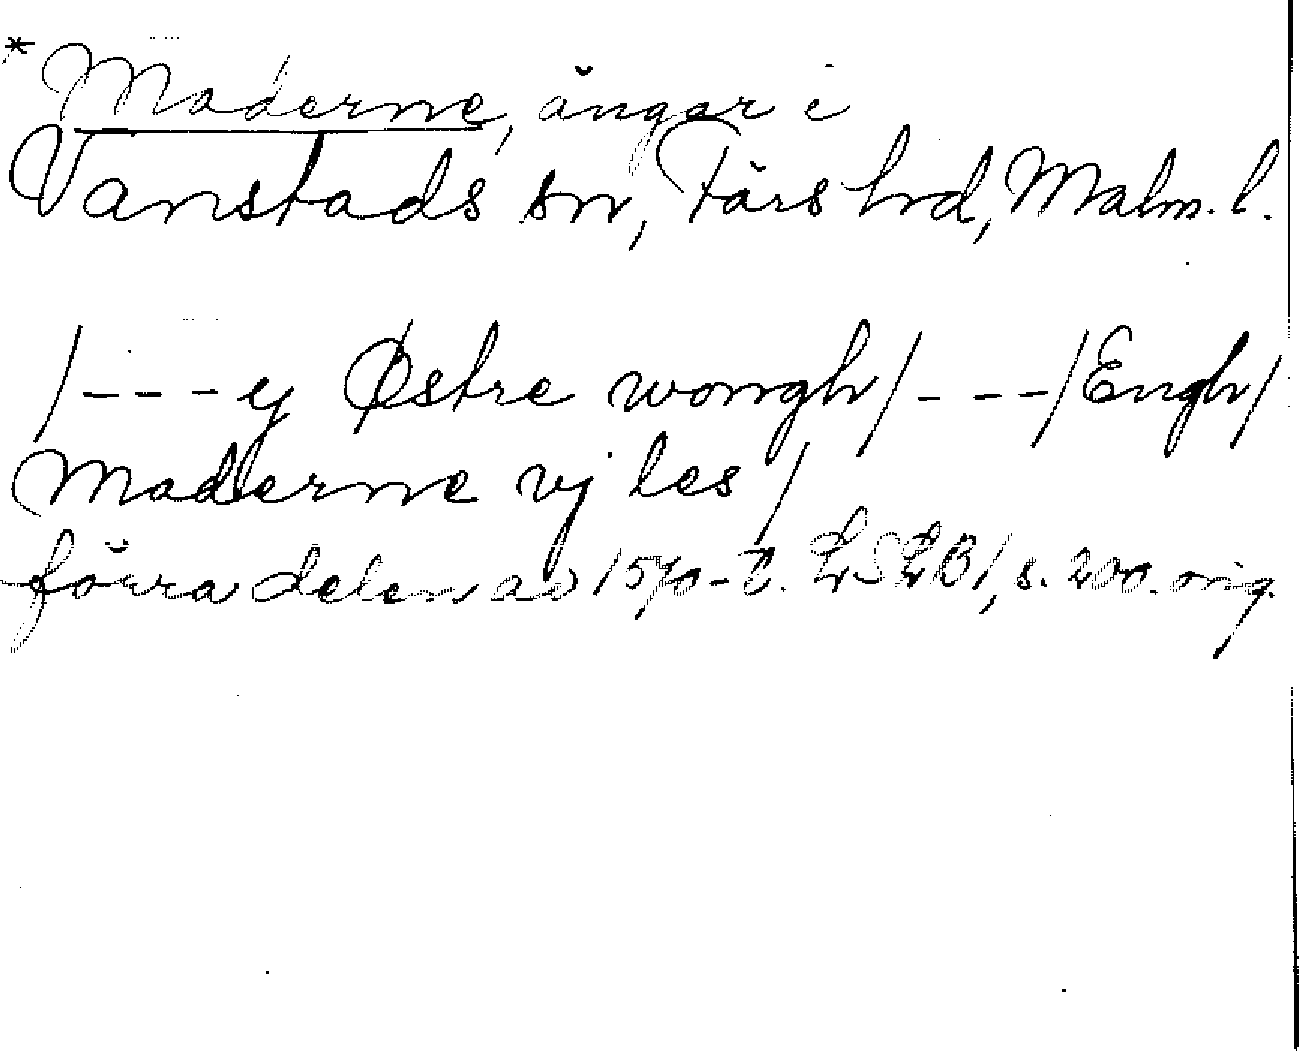 * Maderne, ängar i
Vanstads sn, Färs hrd, Malm. l.
/---y Østre wongh/---/Engh/
Maderne vj les/
förra delen av 1570-t. LSLB1, s. 200. orig.